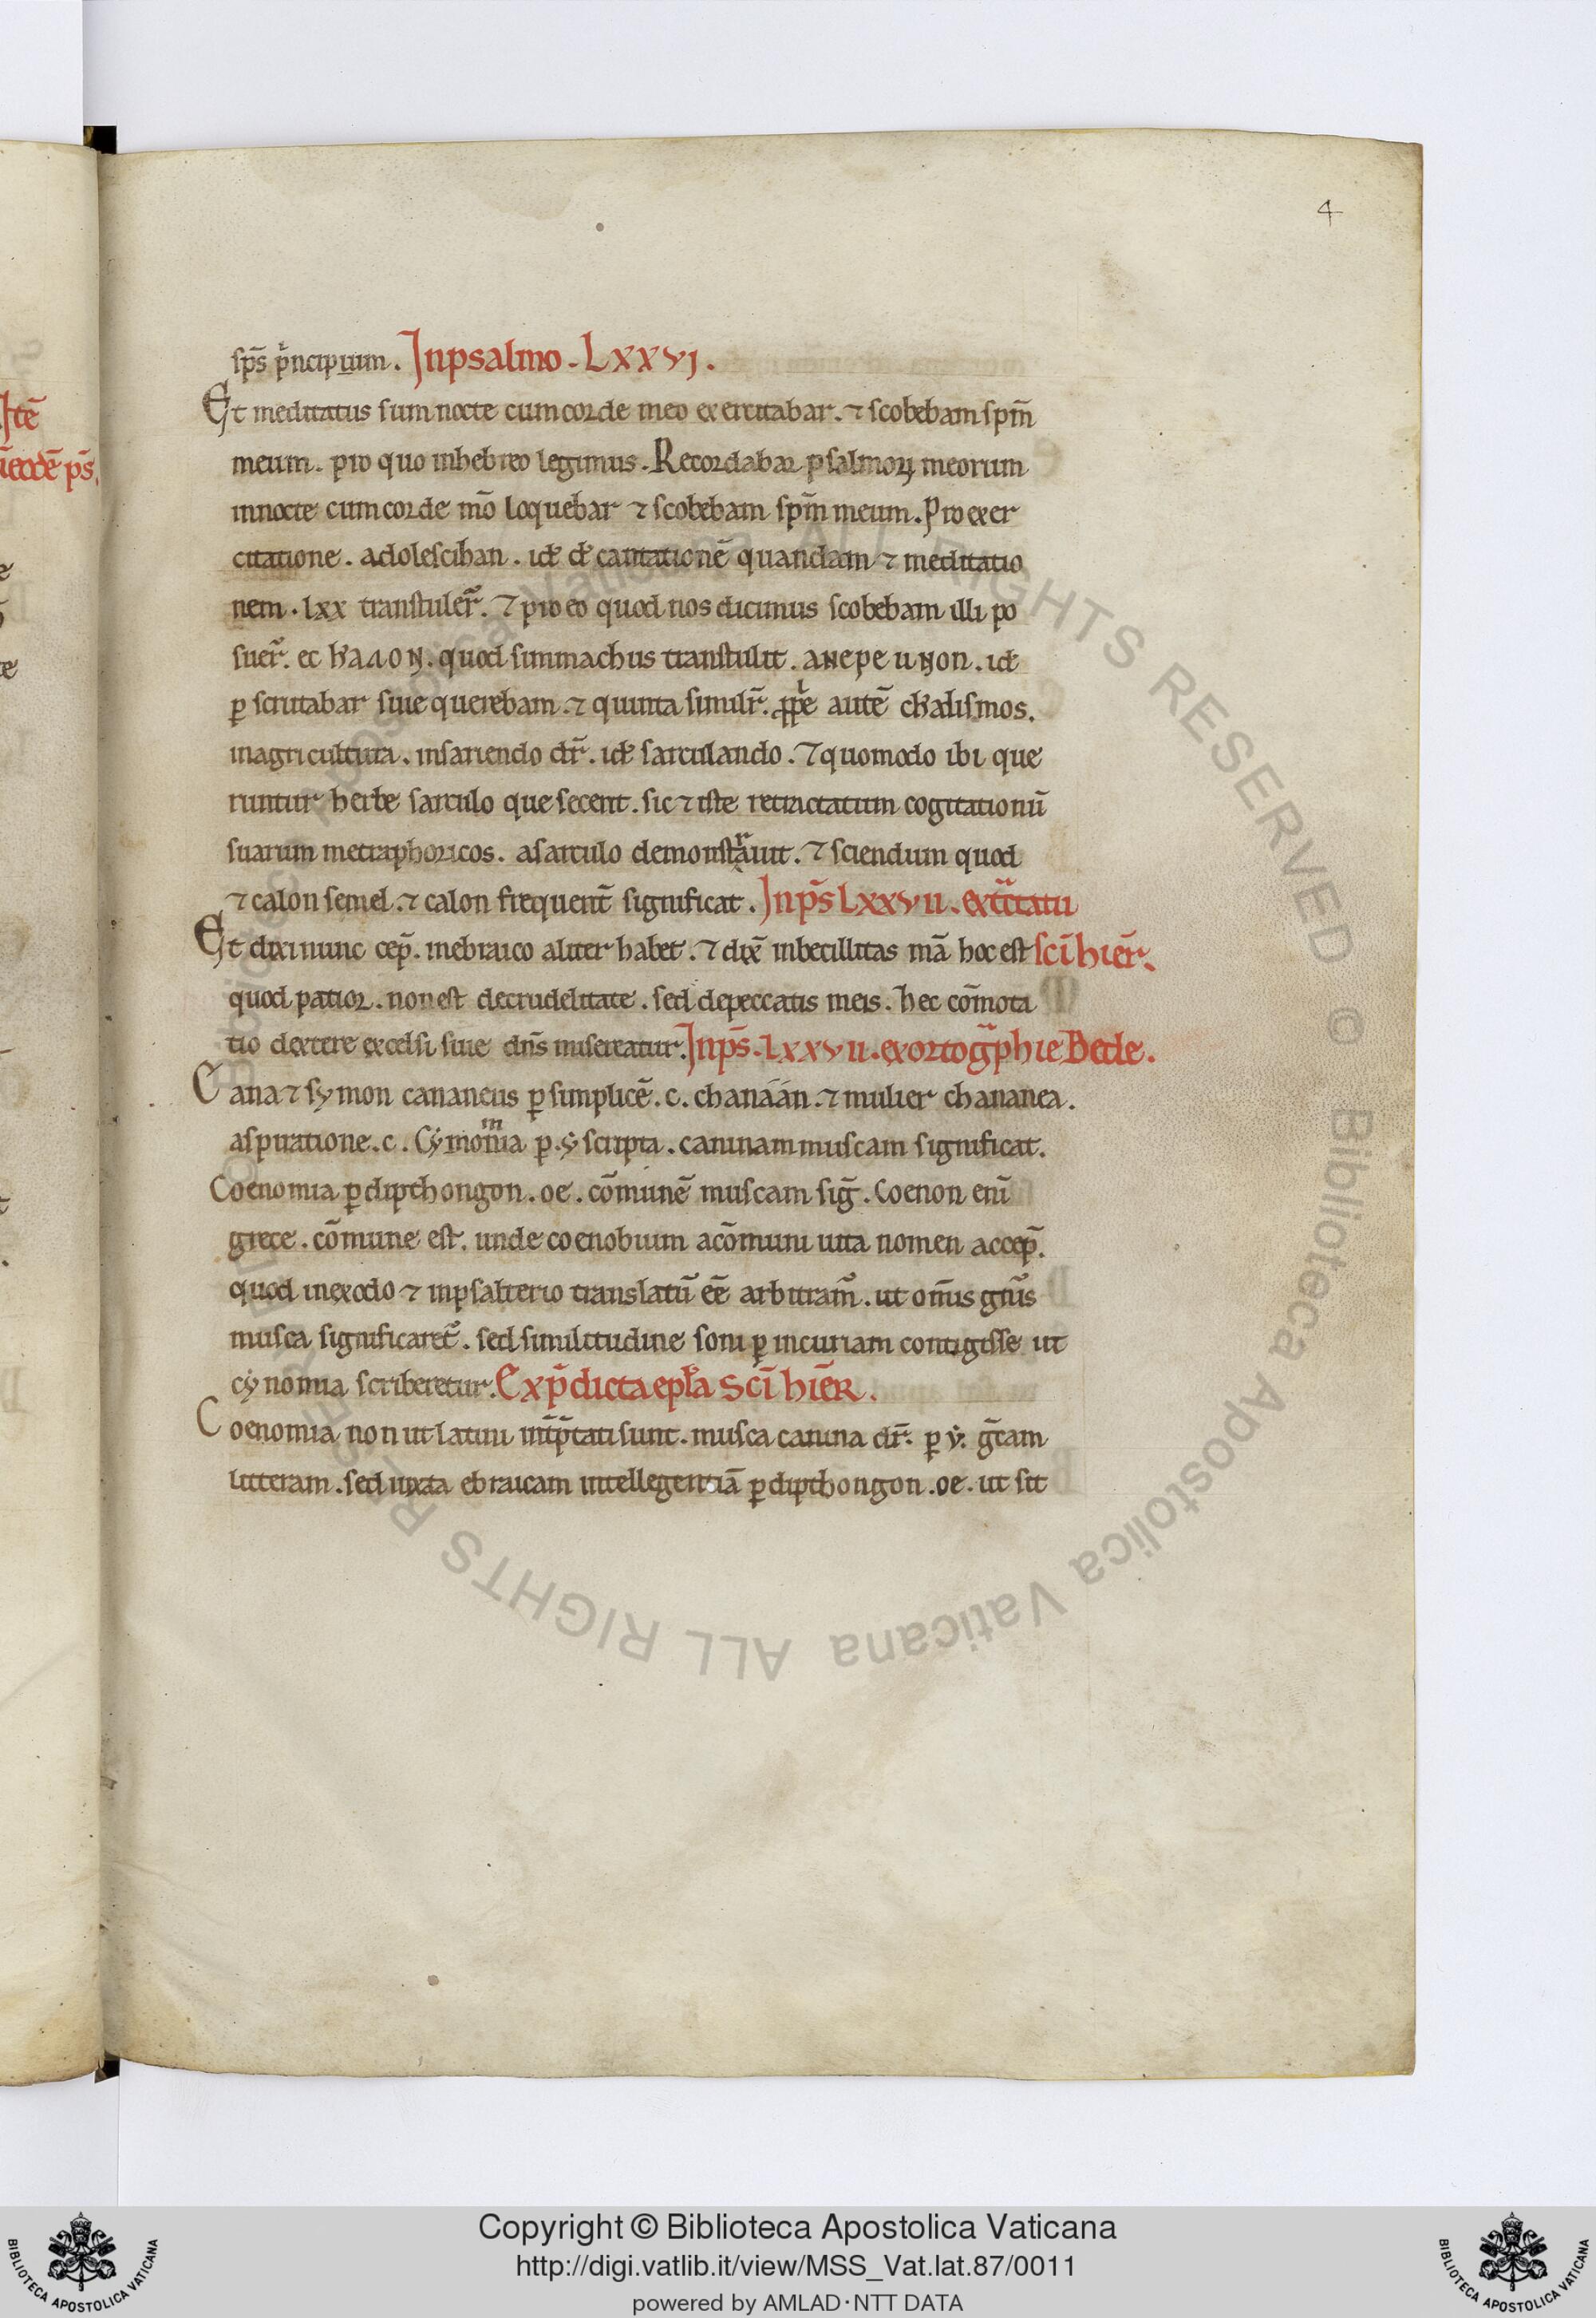 4
sp̄s pͥncipuum. Jnpsalmo. LXXVJ.
Et meditatus sum nocte cum corde meo exercitabar. ⁊ scobebam sp̄m
meum. pro quo inhebreo legimus. Recordabar psalmoꝝ meorum
innocte cum corde mō loquebar ⁊ scobebam sp̄m meum. Pro exer
citatione. adolescihan. idē cantationē quandam ⁊ meditatio
nem. lxx transtuler̄. ⁊ pro eo quod nos dicimus scobebam illi po
suer̄. quod simmachus transtulit. id
ꝑscrutabar siue querebam. ⁊ quinta similr̄. autē chalismos.
inagricultura. insariendo dr̄. id sarculando. ⁊ quomodo ibi que
runtur herbe sarculo que secent. sic ⁊ iste retractatum cogitationū
suarum metraphoricos. asarculo demonstrauit. ⁊ sciendum quod
⁊ calon semel. ⁊ calon frequent̄ significat. Jnps̄ Lxxvii. extctatu
Et dixi nunc cep̄. inebraico aliter habet. ⁊ dixē inbecillitas mā hoc est sc̄i hier̄.
quod patior. non est decrudelitate. sed depeccatis meis. hec cōmota
tio dextere excelsi siue dn̄s misereatur. Jnps̄. Lxxvii. exortogͣphie Bede.
Cana ⁊ symon cananeus ꝑ simplicē. c. chanáán. ⁊ mulier chananea.
aspiratione. c. Cẏmomͫia ꝑ. ẏ scripta. caninam muscam significat.
Coenomia ꝑ dipthongon. oe. cōmunē muscam siḡ. Coenon eni̅
grece. cōmune est. unde coenobium acōmuni uita nomen accep̄.
quod inexodo ⁊ inpsalterio translatū ēē arbitram̄. ut om̄s gn̄us
musca significaret̄. sed similitudine soni ꝑ incuriam contigisse ut
cẏnomia scriberetur. Exp̄dicta epl̄a Sc̄i hieR̄.
Coenomia non ut latini int̄p̄tati sunt. musca canina dr̄. ꝑ ẏ. g̅cam
litteram. sed iuxta ebraicam intellegentiā ꝑ dipthongon. oe. ut sit
Jtē
ieodē ps̄.
Biblioteca Apostolica Vaticana ALL RIGHTS RESERVED © Biblioteca Apostolica Vaticana ALL RIGHTS RESERVED
BIBLIOTECA APOSTOLICA VATICANA
Copyright © Biblioteca Apostolica Vaticana
http://digi.vatlib.it/view/MSS_Vat.lat.87/0011
powered by AMLAD·NTT DATA
BIBLIOTECA APOSTOLICA VATICANA